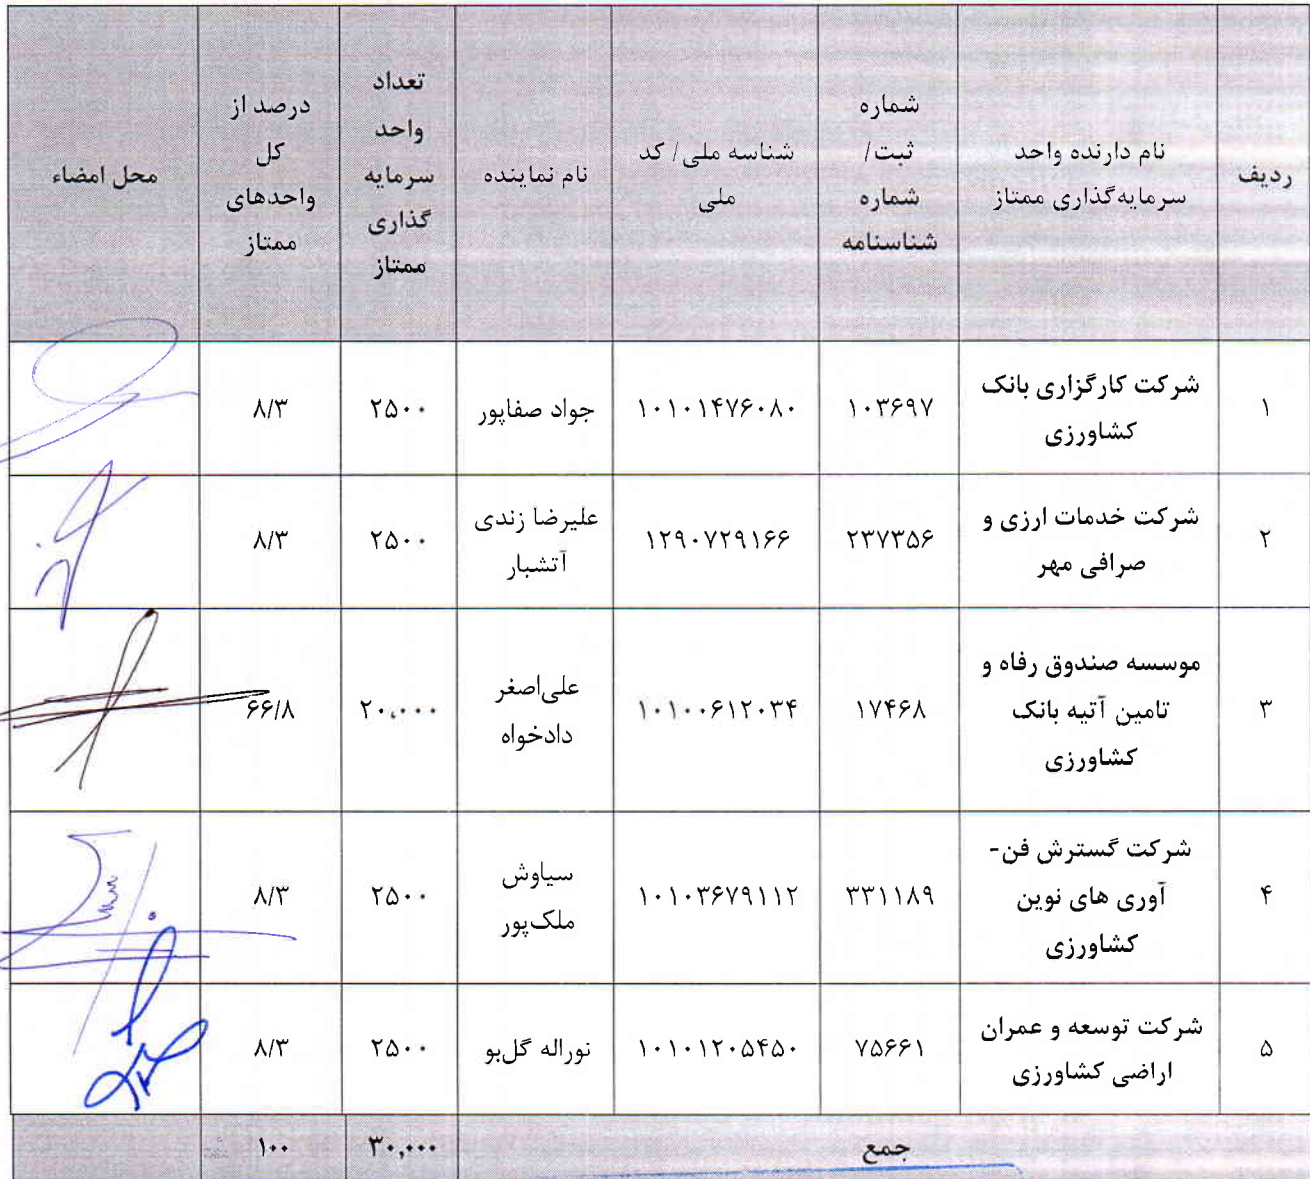 ردیف
نام دارنده واحد
سرمایه‌گذاری ممتاز
شماره
ثبت/
شماره
شناسنامه
شناسه ملی/ کد
ملی
نام نماینده
تعداد
واحد
سرمایه
گذاری
ممتاز
درصد از
کل
واحدهای
ممتاز
محل امضاء
۱
شرکت کارگزاری بانک
کشاورزی
۱۰۳۶۹۷
۱۰۱۰۱۴۷۶۰۸۰
جواد صفاپور
۲۵۰۰
۸/۳
۲
شرکت خدمات ارزی و
صرافی مهر
۲۳۷۳۵۶
۱۲۹۰۷۲۹۱۶۶
علیرضا زندی
آتشبار
۲۵۰۰
۸/۳
۳
موسسه صندوق رفاه و
تامین آتیه بانک
کشاورزی
۱۷۴۶۸
۱۰۱۰۰۶۱۲۰۳۴
علی‌اصغر
دادخواه
۲۰,۰۰۰
۶۶/۸
۴
شرکت گسترش فن-
آوری های نوین
کشاورزی
۳۳۱۱۸۹
۱۰۱۰۳۶۷۹۱۱۲
سیاوش
ملک‌پور
۲۵۰۰
۸/۳
۵
شرکت توسعه و عمران
اراضی کشاورزی
۷۵۶۶۱
۱۰۱۰۱۲۰۵۴۵۰
نوراله گل‌بو
۲۵۰۰
۸/۳
جمع
۳۰,۰۰۰
۱۰۰